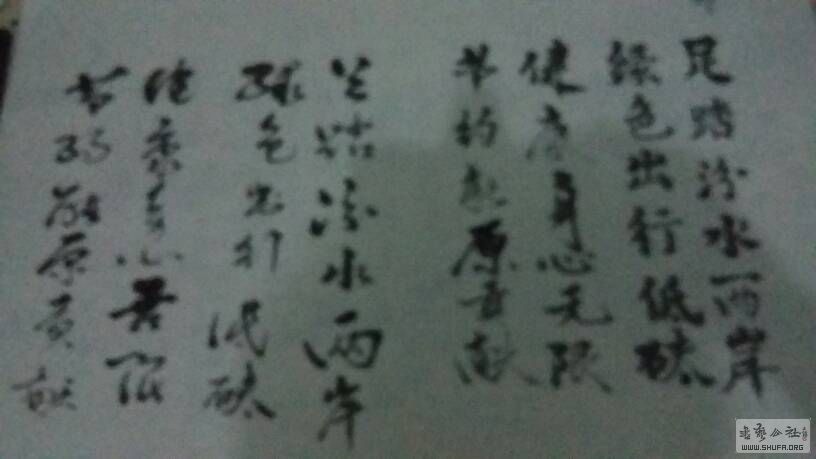 足踏汾水两岸
绿色出行低碳
健康身心无限
节约能源贡献
足踏汾水两岸
绿色出行低碳
健康身心无限
节约能源贡献
书艺公社
WWW.SHUFA.ORG